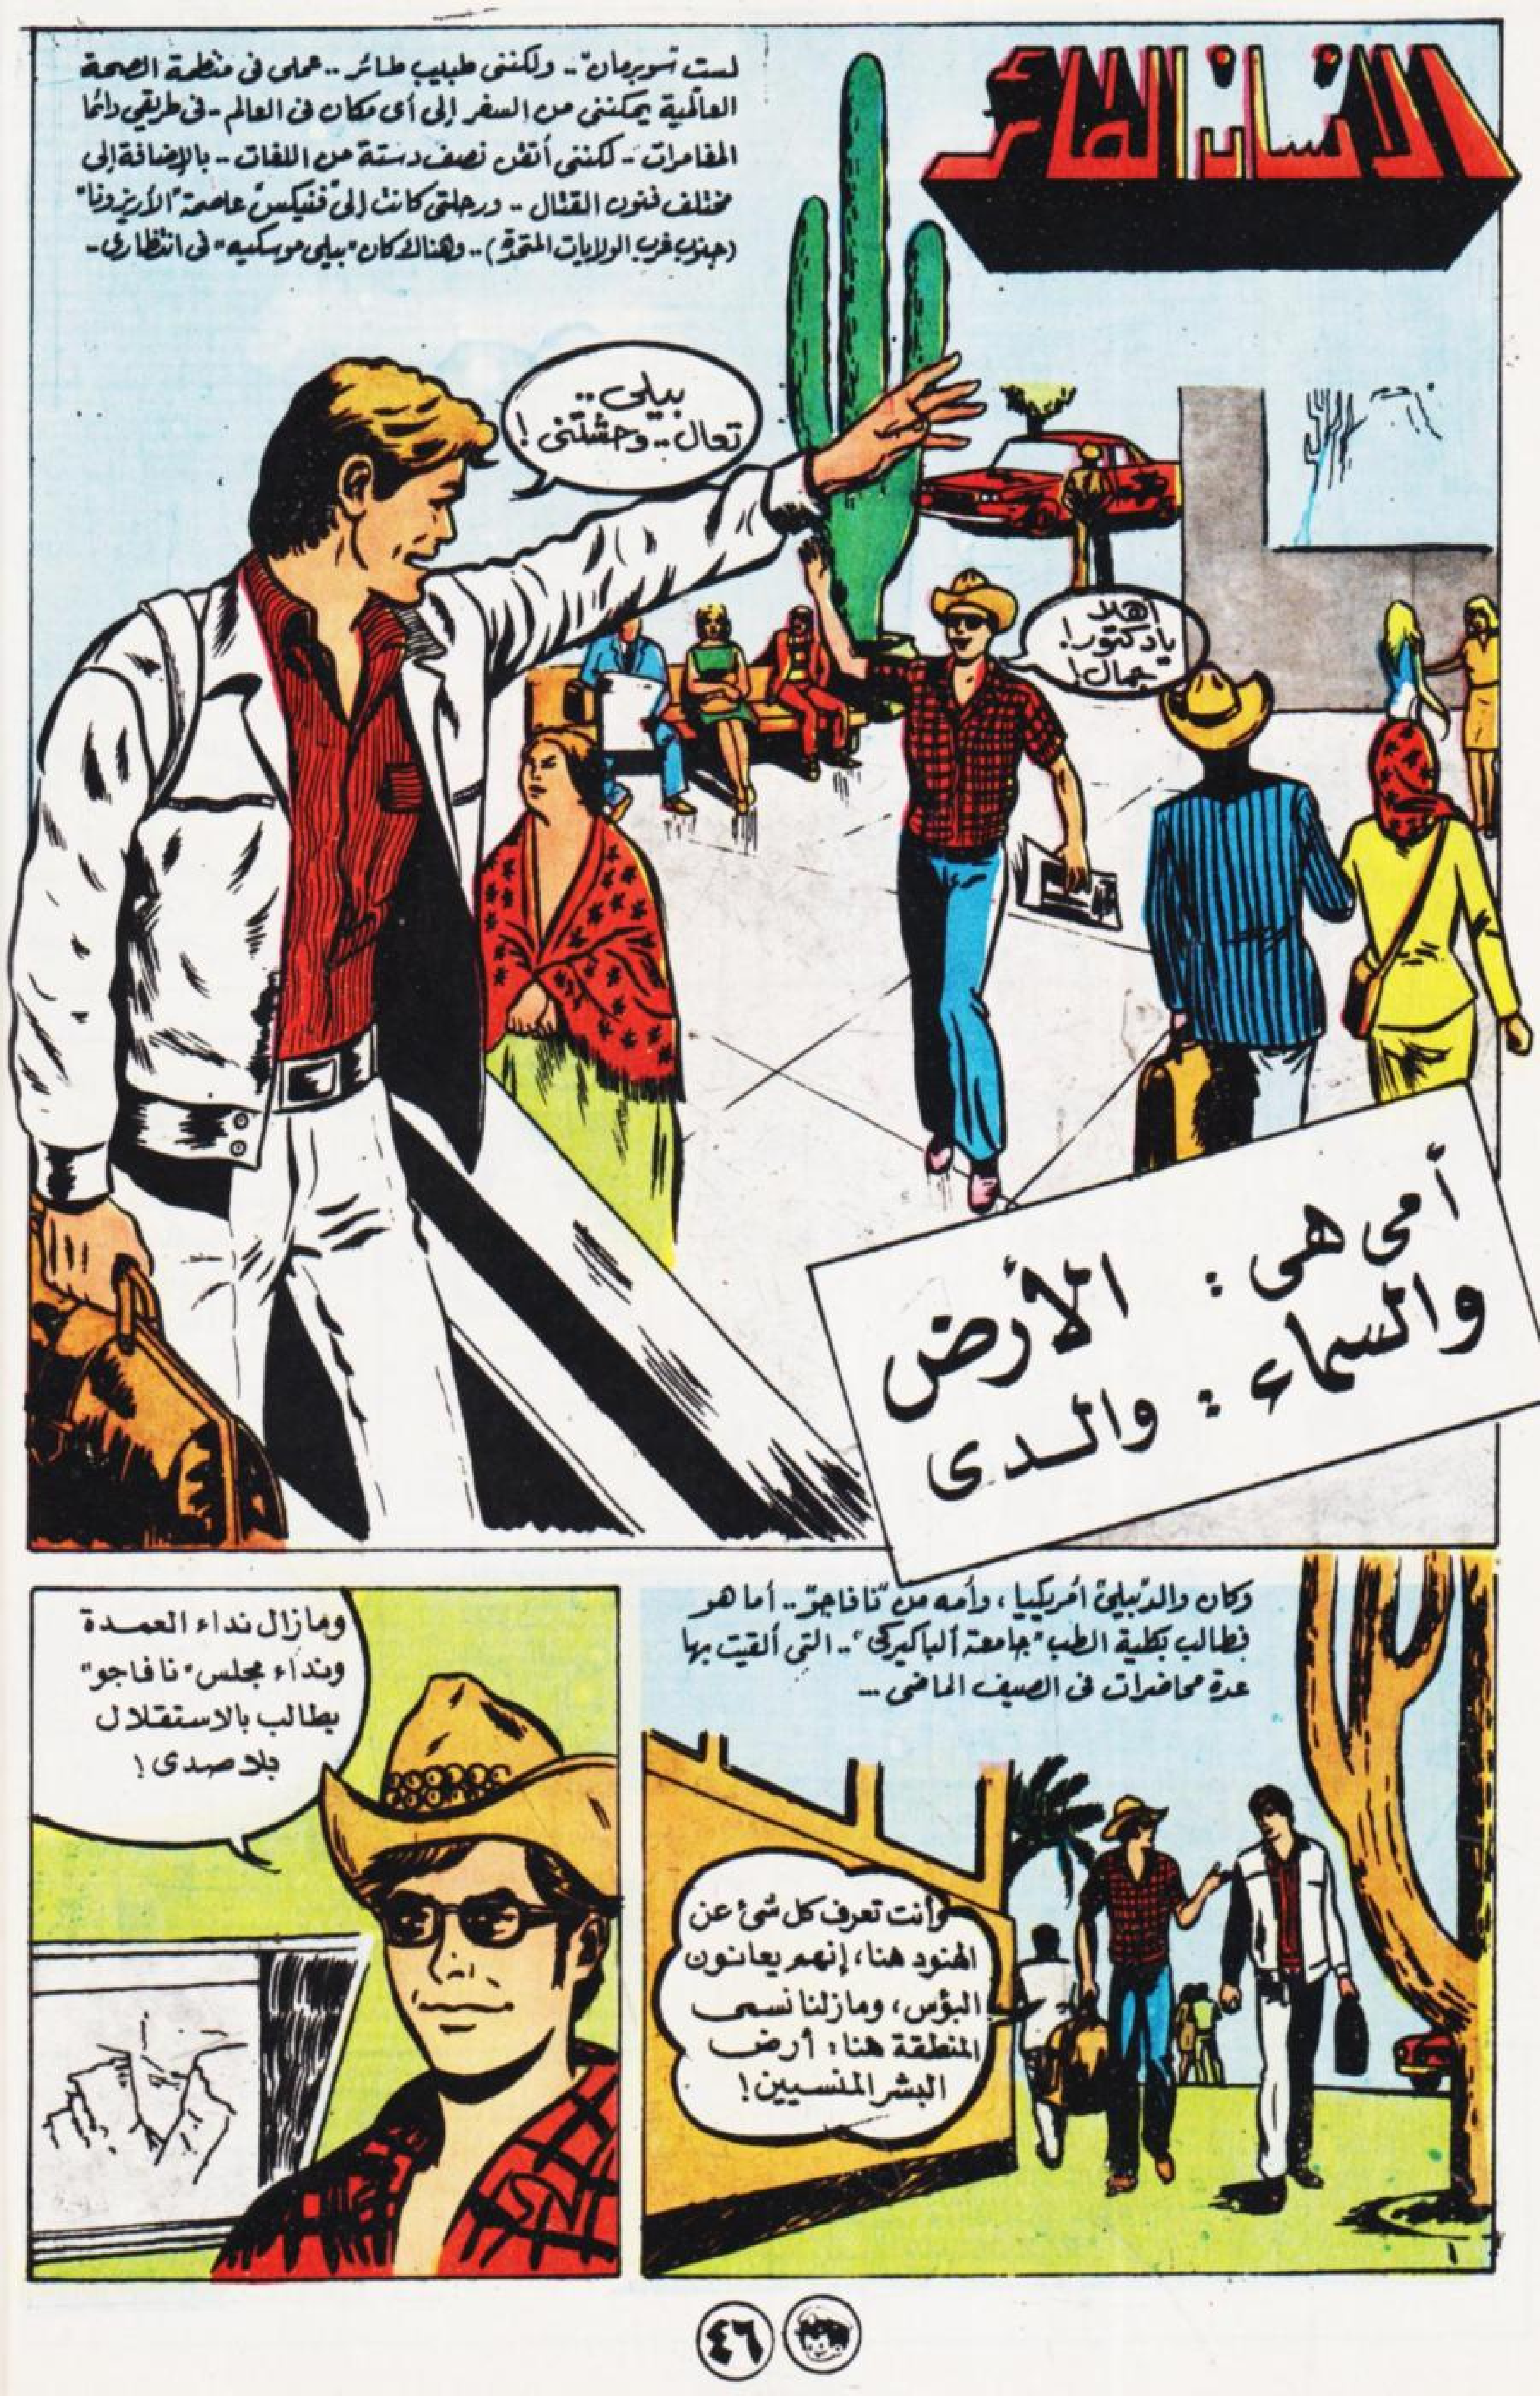 الإنسان الطائر
لست "سوبرمان" .. ولكننى طبيب طائر .. عملى فى منظمة الصحة
العالمية يمكننى من السفر إلى أى مكان فى العالم - فى طريقي دائما
المغامرات - لكننى أتقن نصف دستة من اللغات - بالإضافة إلى
مختلف فنون القتال .. ورحلتى كانت إلى "فنيكس" عاصمة "الأريزونا"
(جنوب غرب الولايات المتحدة) .. وهناك كان "بيلى موسكيه" فى انتظارى -
بيلى ..
تعال .. وحشتنى !
أهلا
يا دكتور!
جمال!
أمى هى : الأرض
والسماء : والدى
وكان والد "بيلى" أمريكيا ، وأمه من "نافاجو" .. أما هو
فطالب بكلية الطب "جامعة ألباكيركى" .. التى ألقيت بها
عدة محاضرات فى الصيف الماضى ...
وأنت تعرف كل شئ عن
الهنود هنا، إنهم يعانون
البؤس ، ومازلنا نسمى
المنطقة هنا : أرض
البشر المنسيين !
ومازال نداء العمدة
ونداء مجلس "نافاجو"
يطالب بالاستقلال
بلا صدى !
١
٤٦